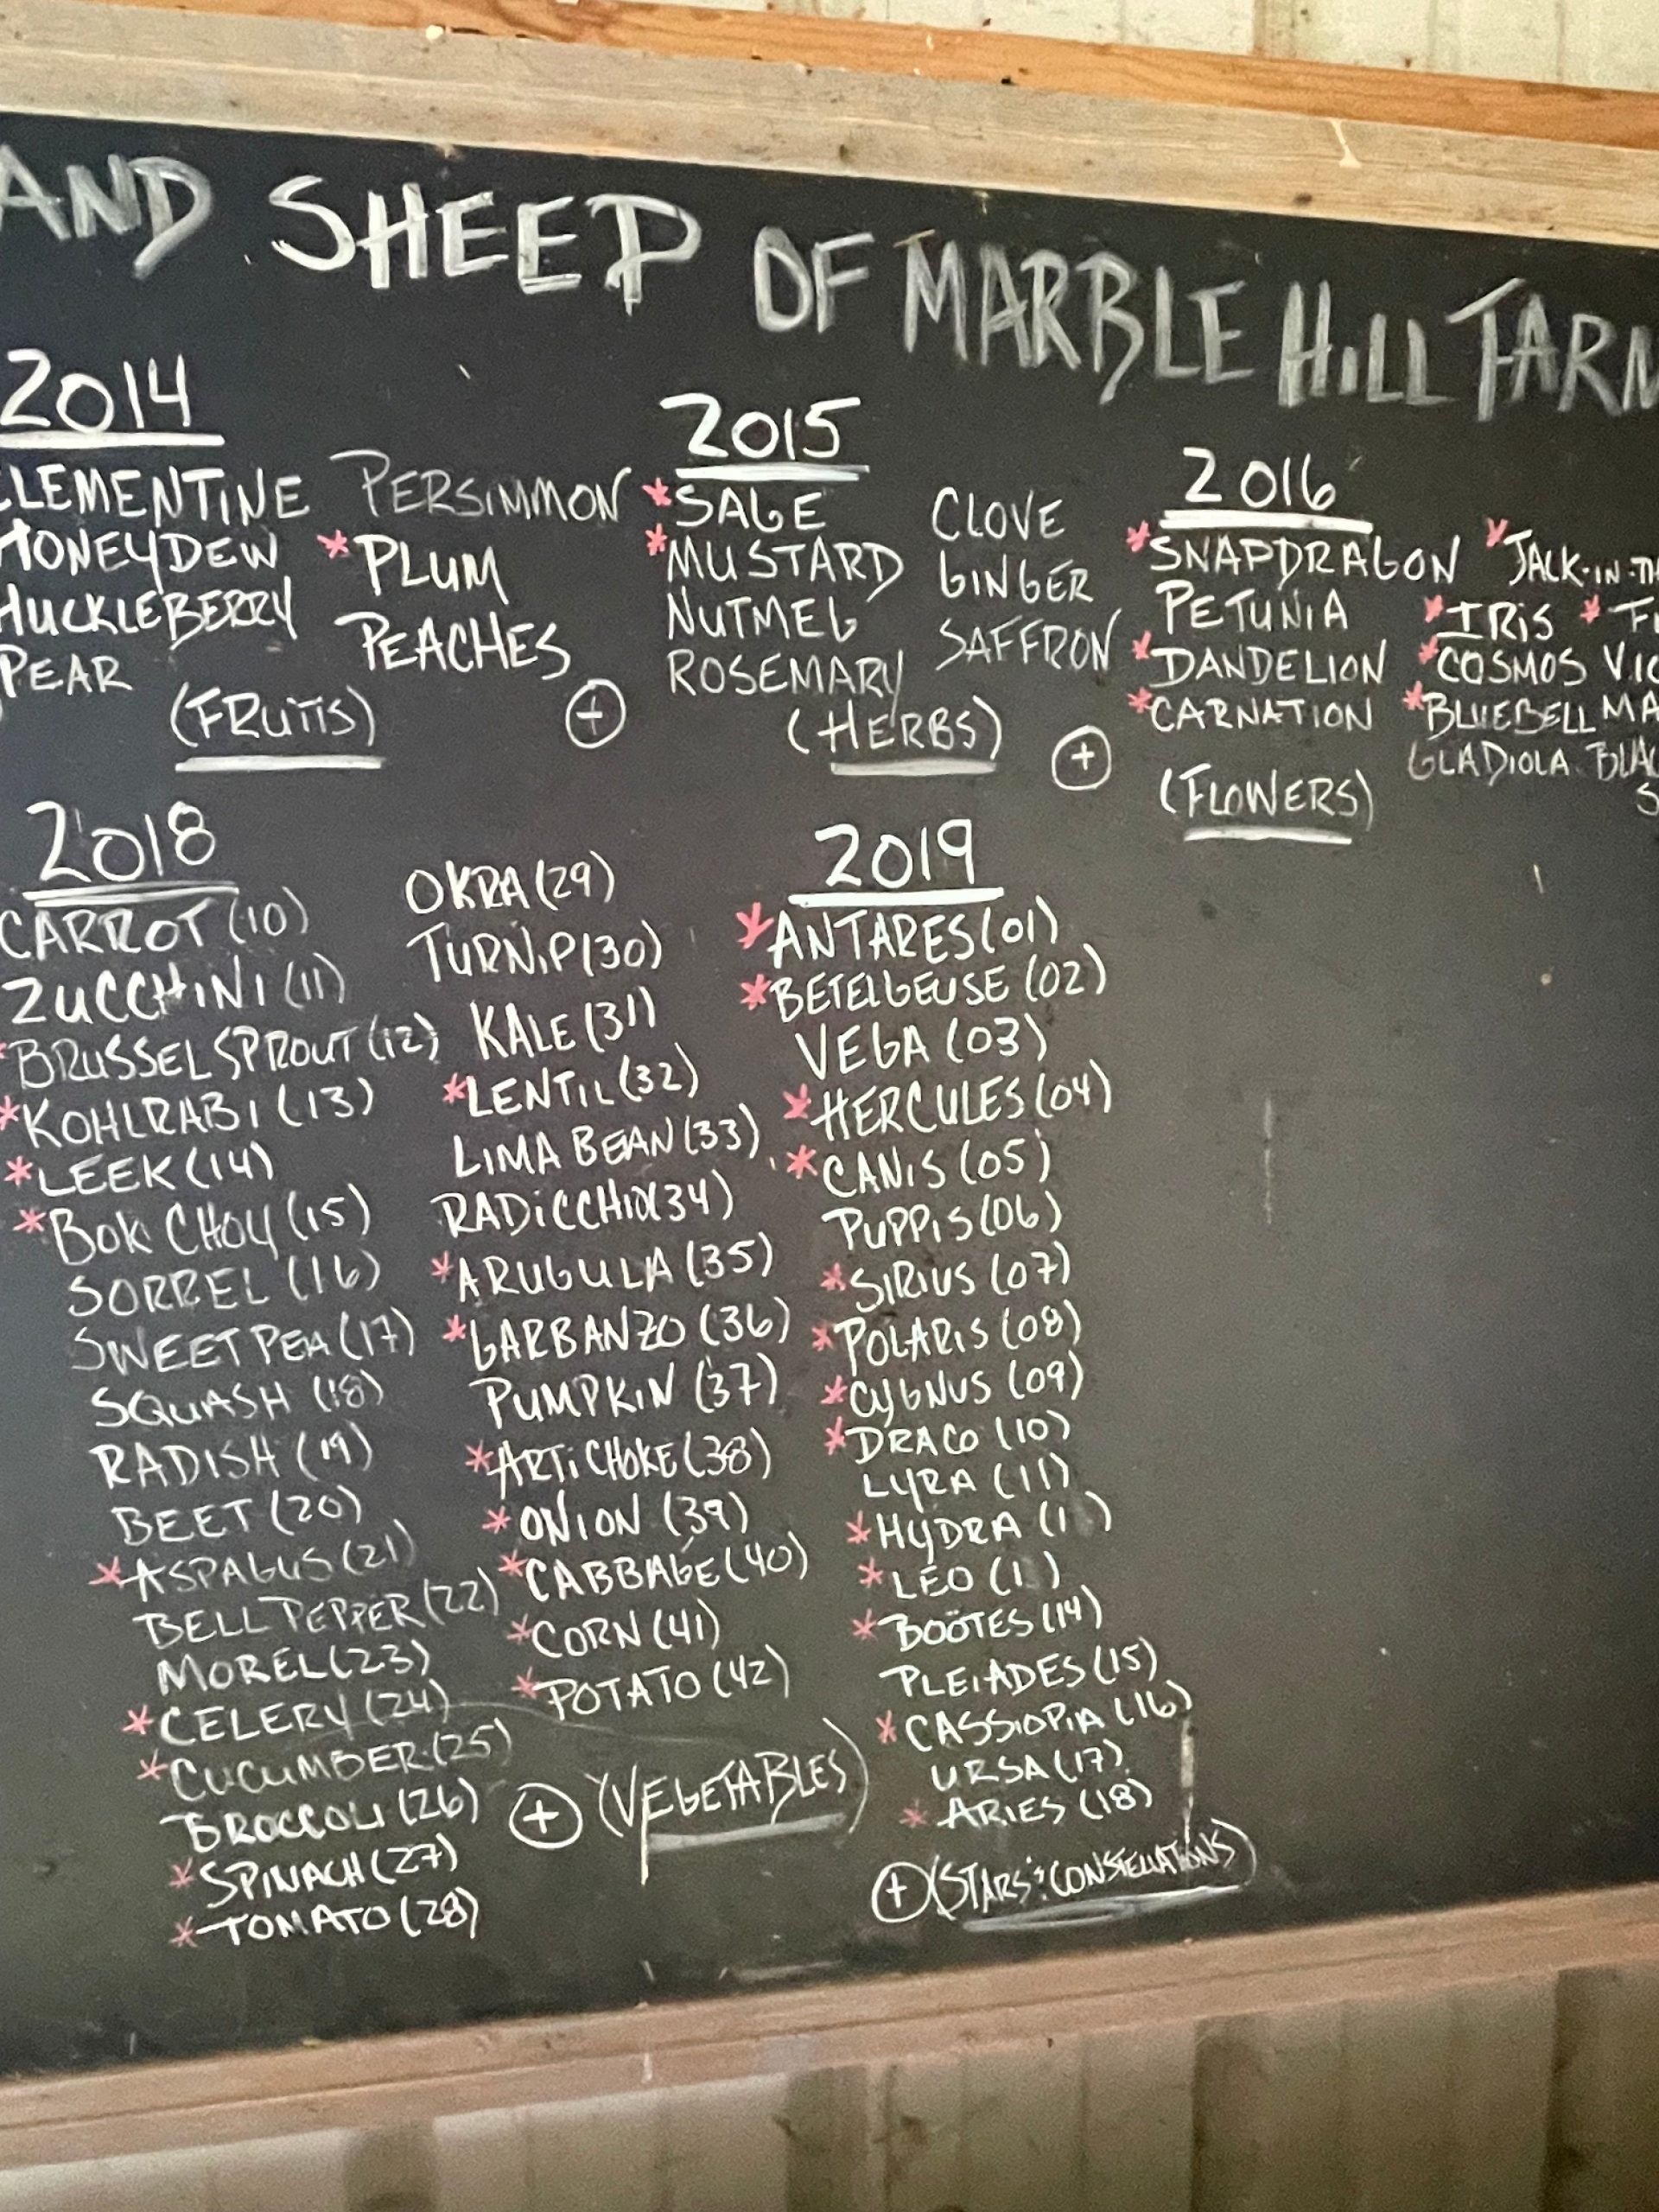 AND SHEEP OF MARBLE HILL FARM
2014
CLEMENTINE
HONEYDEW
HUCKLEBERRY
PEAR
PERSIMMON
*PLUM
PEACHES
(FRUITS)
+
2015
*SAGE
*MUSTARD
NUTMEG
ROSEMARY
CLOVE
GINGER
SAFFRON
(HERBS)
+
2016
*SNAPDRAGON
PETUNIA
*DANDELION
*CARNATION
*JACK-IN-TH
*IRIS *
*COSMOS VIO
*BLUEBELL MA
GLADIOLA BLAC
S
(FLOWERS)
2018
CARROT (10)
ZUCCHINI (11)
*BRUSSEL SPROUT (12)
*KOHLRABI (13)
*LEEK (14)
*BOK CHOY (15)
SORREL (16)
SWEET PEA (17)
SQUASH (18)
RADISH (19)
BEET (20)
*ASPAGUS (21)
BELL PEPPER (22)
MOREL (23)
*CELERY (24)
*CUCUMBER (25)
BROCCOLI (26)
*SPINACH (27)
*TOMATO (28)
OKRA (29)
TURNIP (30)
KALE (31)
*LENTIL (32)
LIMA BEAN (33)
RADICCHIO (34)
*ARUGULA (35)
*GARBANZO (36)
PUMPKIN (37)
*ARTICHOKE (38)
*ONION (39)
*CABBAGE (40)
*CORN (41)
*POTATO (42)
+ (VEGETABLES)
2019
*ANTARES (01)
*BETELGEUSE (02)
VEGA (03)
*HERCULES (04)
*CANIS (05)
PUPPIS (06)
*SIRIUS (07)
*POLARIS (08)
*CYGNUS (09)
*DRACO (10)
LYRA (11)
*HYDRA (1 )
*LEO (1 )
*BOÖTES (14)
PLEIADES (15)
*CASSIOPIA (16)
URSA (17)
*ARIES (18)
+ (STARS & CONSTELLATIONS)